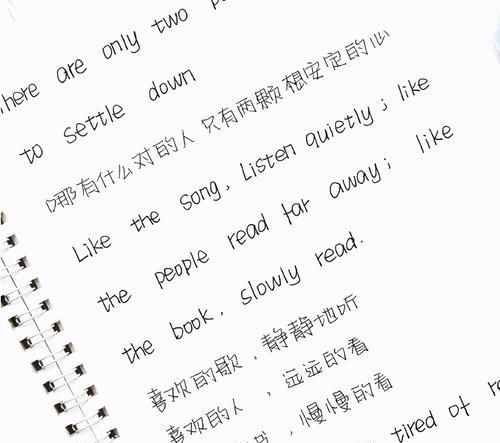 here are only two
to settle down
哪有什么对的人 只有两颗想安定的心
Like the song, Listen quietly; like
the people read far away; like
the book, slowly read.
喜欢的歌,静静地听
喜欢的人,远远的看
,慢慢的看
tired of